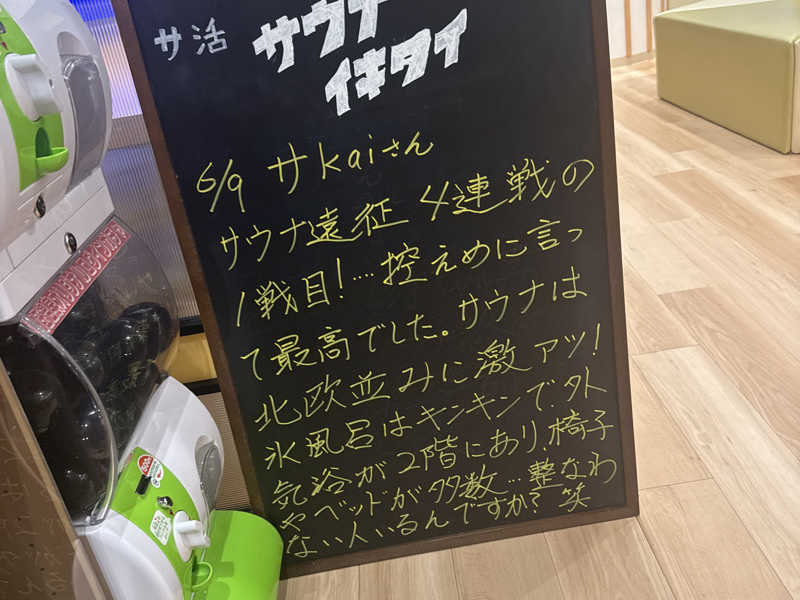 サ活 サウナ
イキタイ
6/9 サkaiさん
サウナ遠征 4連戦の
1戦目!…控えめに言っ
て最高でした。サウナは
北欧並みに激アツ!
水風呂はキンキンで外
気浴が2階にあり、椅子
やベッドが多数…整なわ
ない人いるんですか?笑